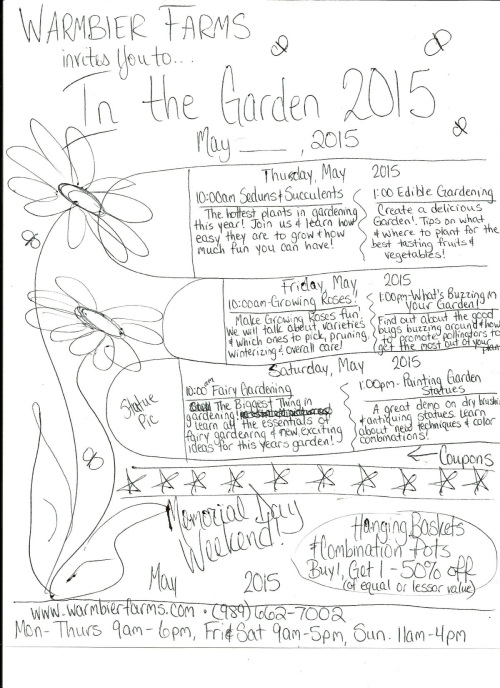 WARMBIER FARMS
invites you to...
In the Garden 2015
May ____, 2015
Thursday, May 2015
10:00am Sedums & Succulents
The hottest plants in gardening
this year! Join us & learn how
easy they are to grow & how
much fun you can have!
1:00 Edible Gardening
Create a delicious
Garden! Tips on what
& where to plant for the
best tasting fruits &
vegetables!
Friday, May 2015
10:00am-Growing Roses!
Make Growing Roses fun!
We will talk about varieties
& which ones to pick, pruning,
winterizing & overall care!
1:00pm-What's Buzzing in
your Garden!
Find out about the good
bugs buzzing around & how
to promote pollinators to
get the most out of your
plants
Saturday, May 2015
10:00am Fairy Gardening
The Biggest Thing in
gardening!
Learn all the essentials of
fairy gardening & new, exciting
ideas for this years garden!
1:00pm-Painting Garden
Statues
A great demo on dry brushing
& antiquing statues. Learn
about new techniques & color
combinations!
Statue
Pic
Coupons
Memorial Day
Weekend!
May 2015
Hanging Baskets
& Combination Pots
Buy 1, Get 1 - 50% off
(of equal or lessor value)
www.warmbierfarms.com • (989) 662-7002
Mon-Thurs 9am-6pm, Fri & Sat 9am-5pm, Sun. 11am-4pm